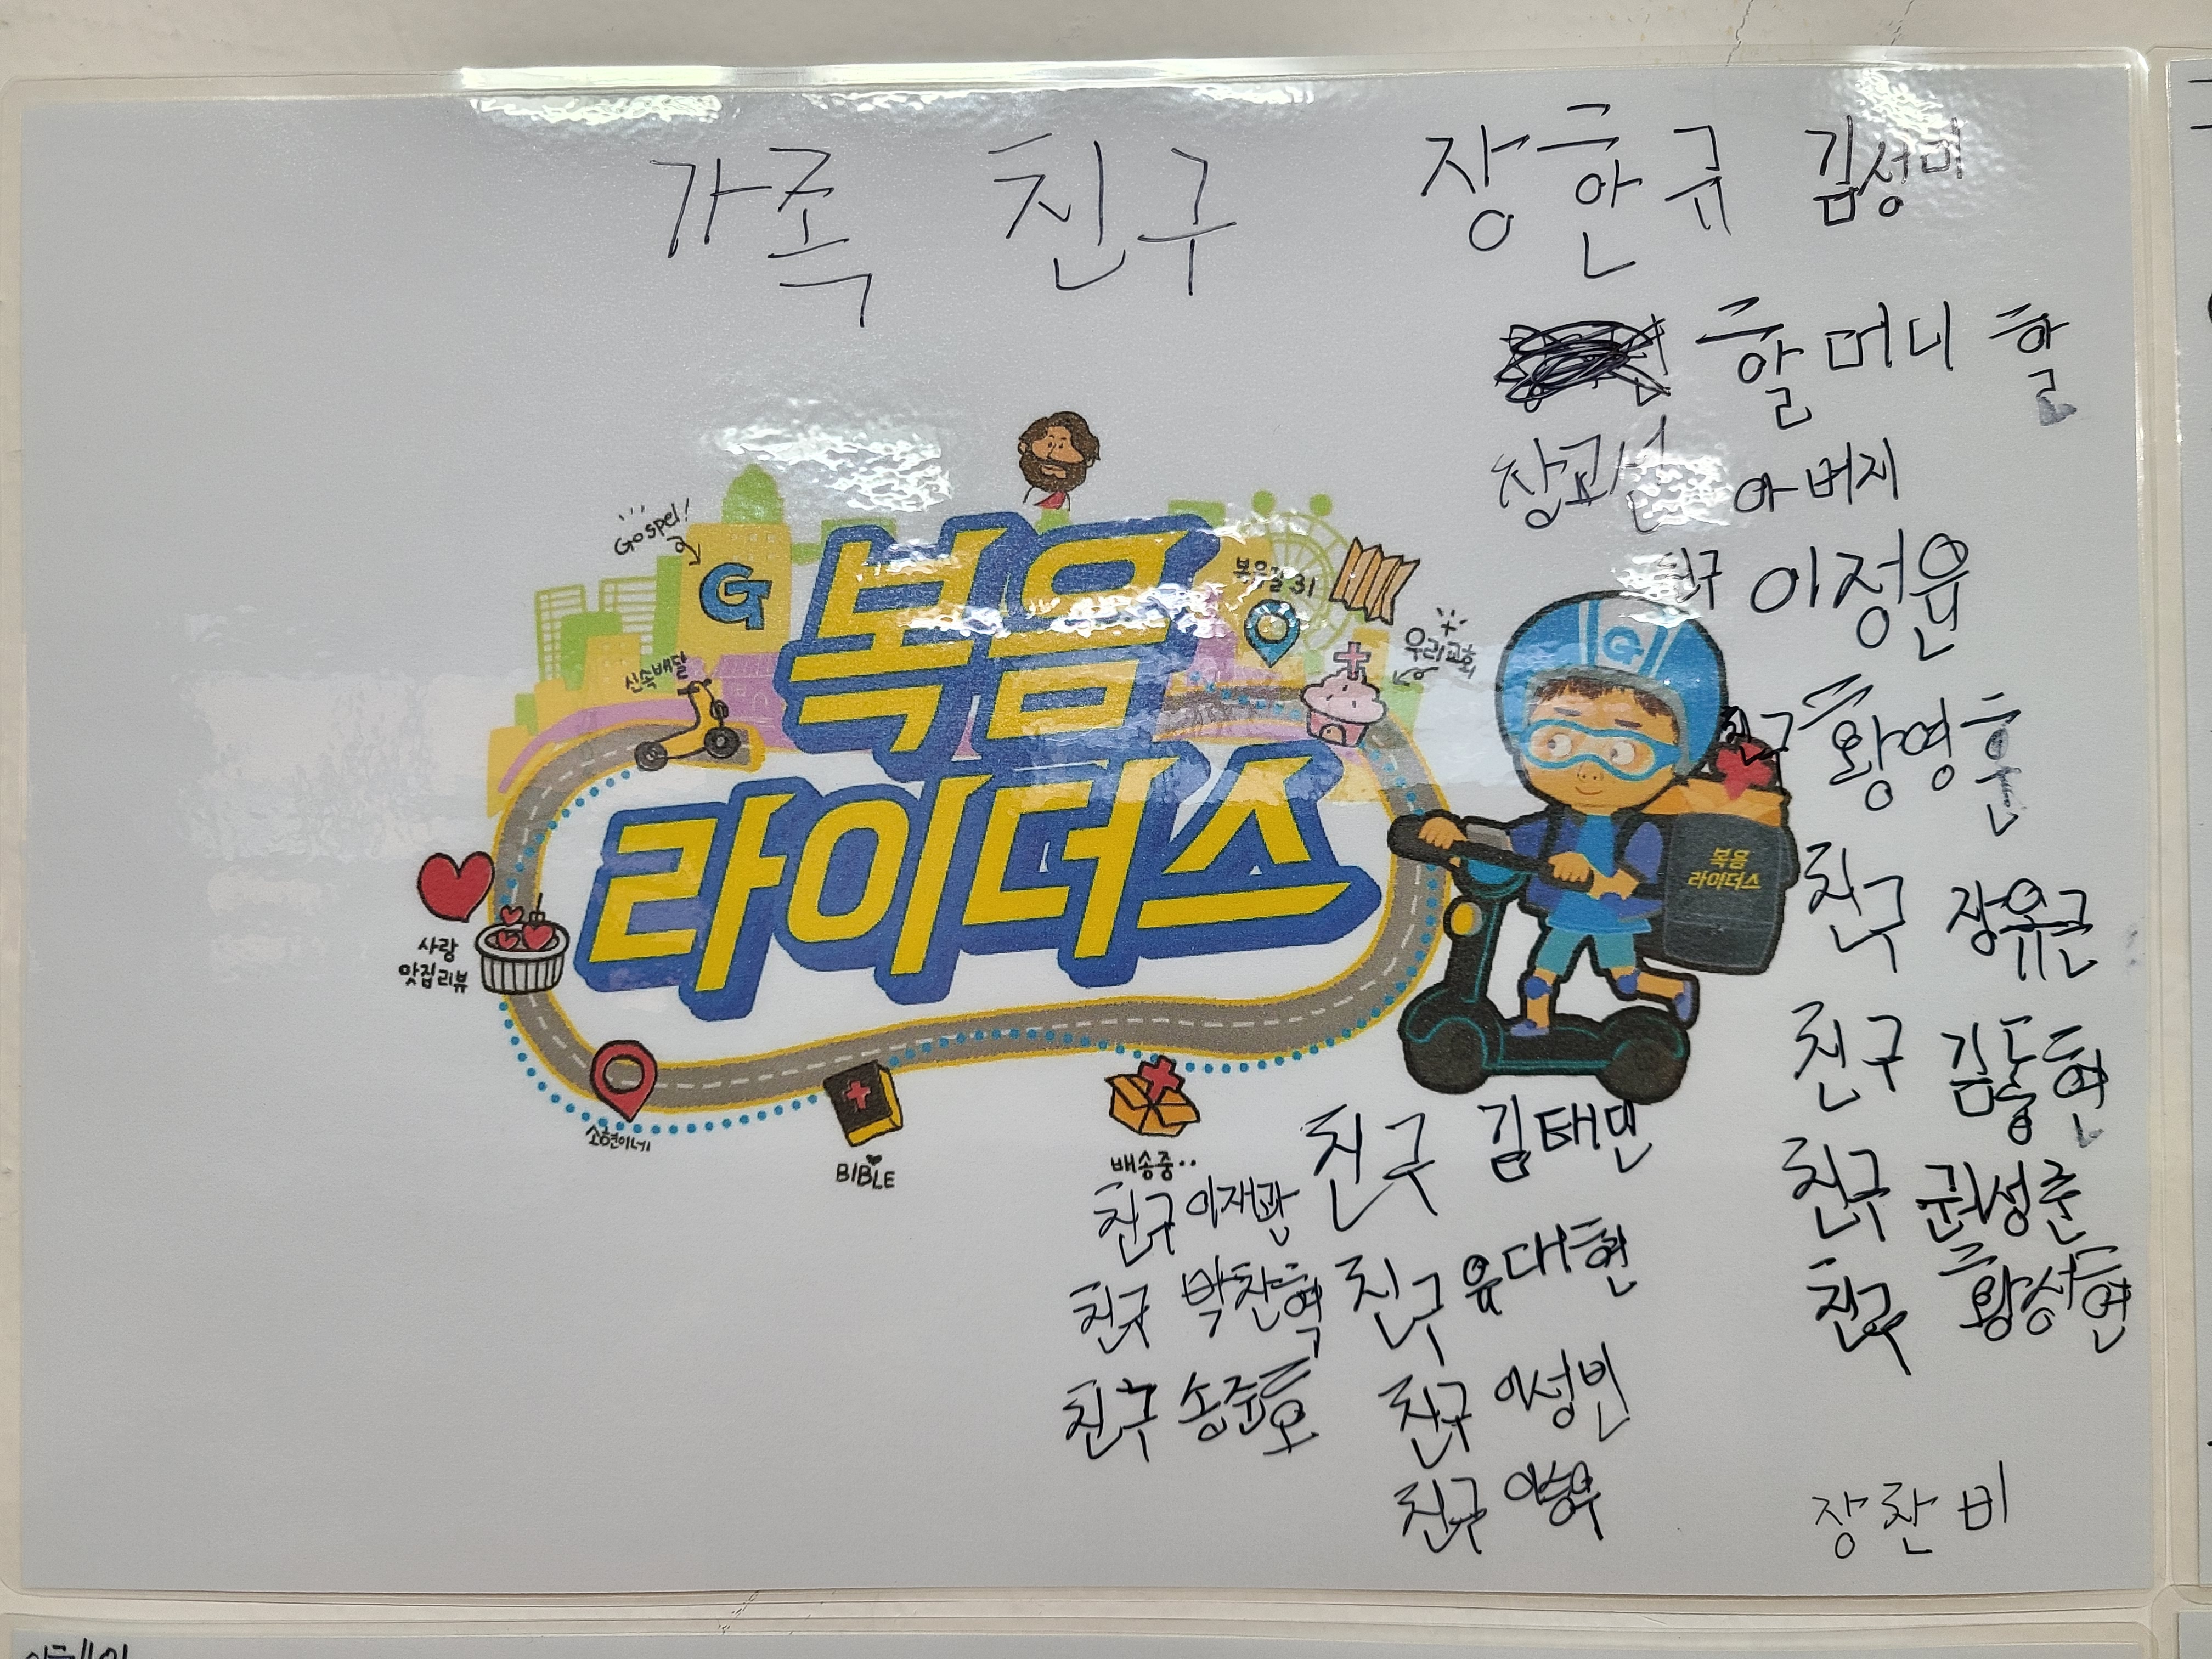 가족 친구 장한규 김성미
할머니 할
아버지
장교선
친구 이정윤
Gospel!
G
복음길 31
우리교회
신속배달
복음
라이더스
G
친구 황영훈
복음
라이더스
친구 장유근
사랑
맛집리뷰
친구 김동현
소현이네
BIBLE
배송중..
친구 김태민
친구 권성준
친구 이재관
친구 유대현
친구 황성현
친구 박찬혁
친구 이성빈
친구 송준호
친구 이승우
장찬비